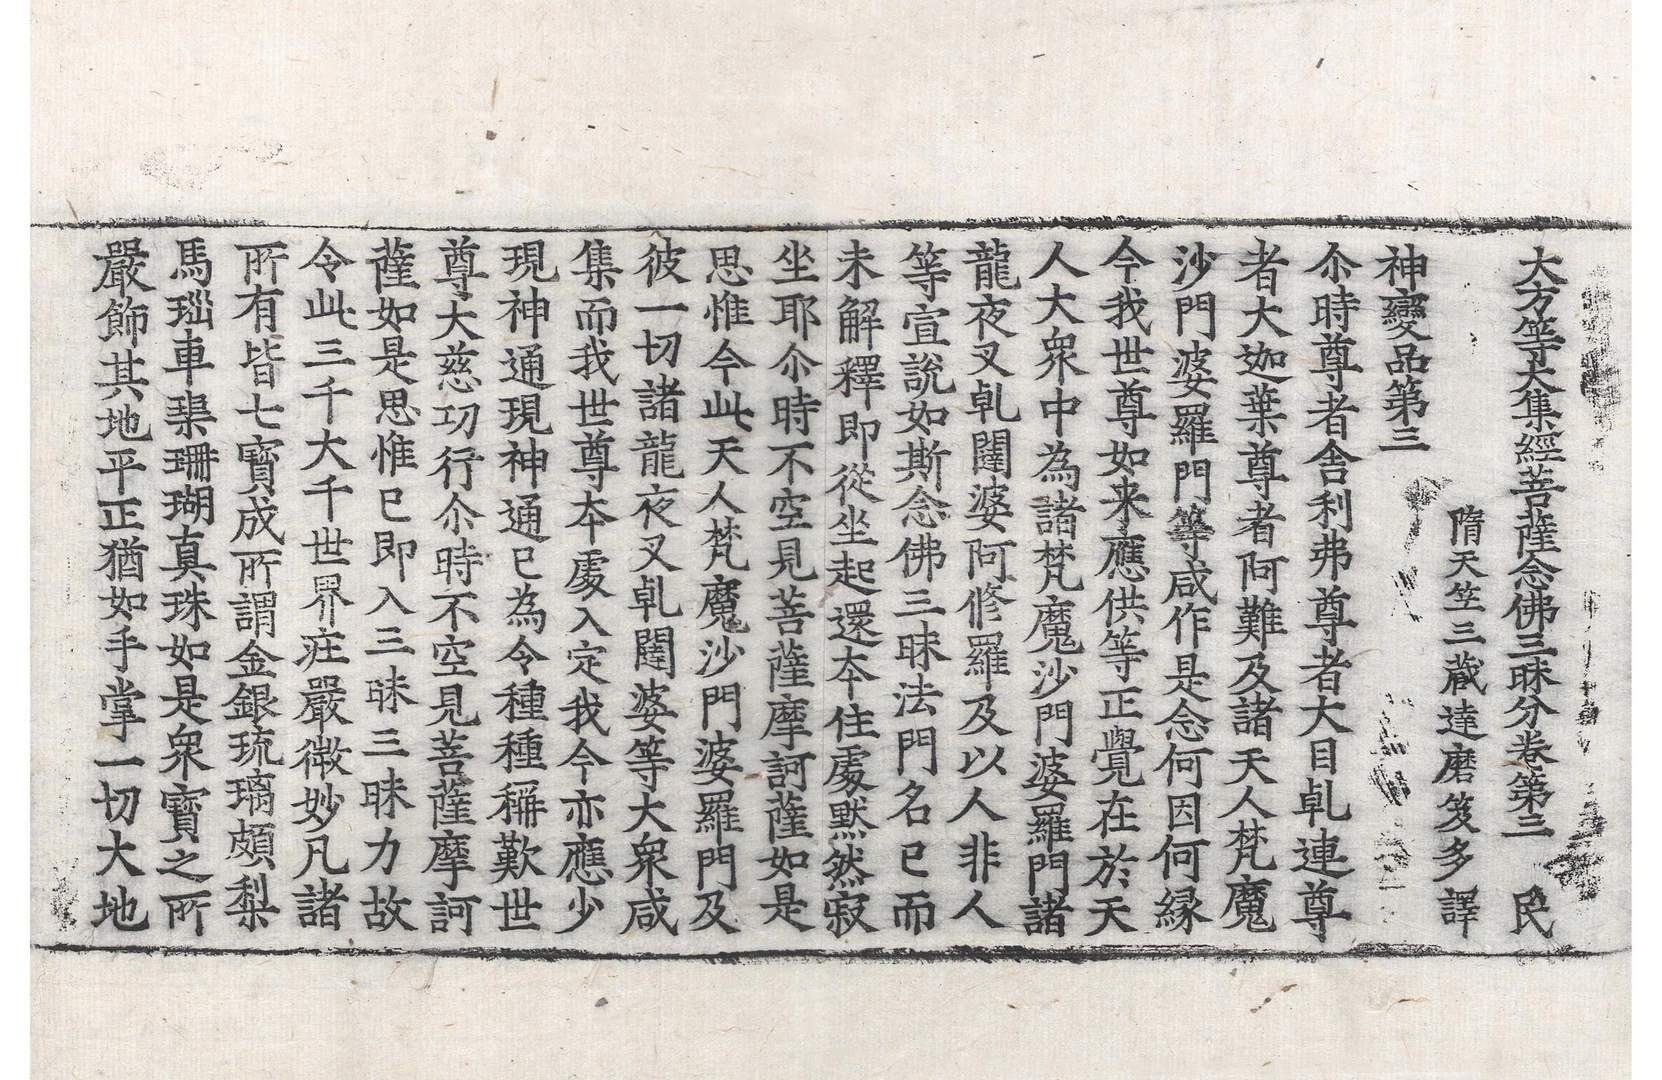 大方等大集經菩薩念佛三昧分卷第三　民
隋天笠三蔵達磨笈多譯
神變品第三
尒時尊者舎利弗尊者大目乹連尊
者大迦葉尊者阿難及諸天人梵魔
沙門婆羅門等咸作是念何因何縁
今我世尊如来應供等正覺在於天
人大衆中為諸梵魔沙門婆羅門諸
龍夜叉乹闥婆阿脩羅及以人非人
等宣說如斯念佛三昧法門名已而
未解釋即從坐起還本住處默然寂
坐耶尒時不空見菩薩摩訶薩如是
思惟今此天人梵魔沙門婆羅門及
彼一切諸龍夜叉乹闥婆等大衆咸
集而我世尊夲處入定我今亦應少
現神通現神通已為令種種稱歎世
尊大慈功行尒時不空見菩薩摩訶
薩如是思惟已即入三昧三昧力故
令此三千大千世界荘嚴微妙凡諸
所有皆七寳成所謂金銀琉璃頗梨
馬瑙車𤦲珊瑚真珠如是衆寳之所
嚴飾其地平正猶如手掌一切大地